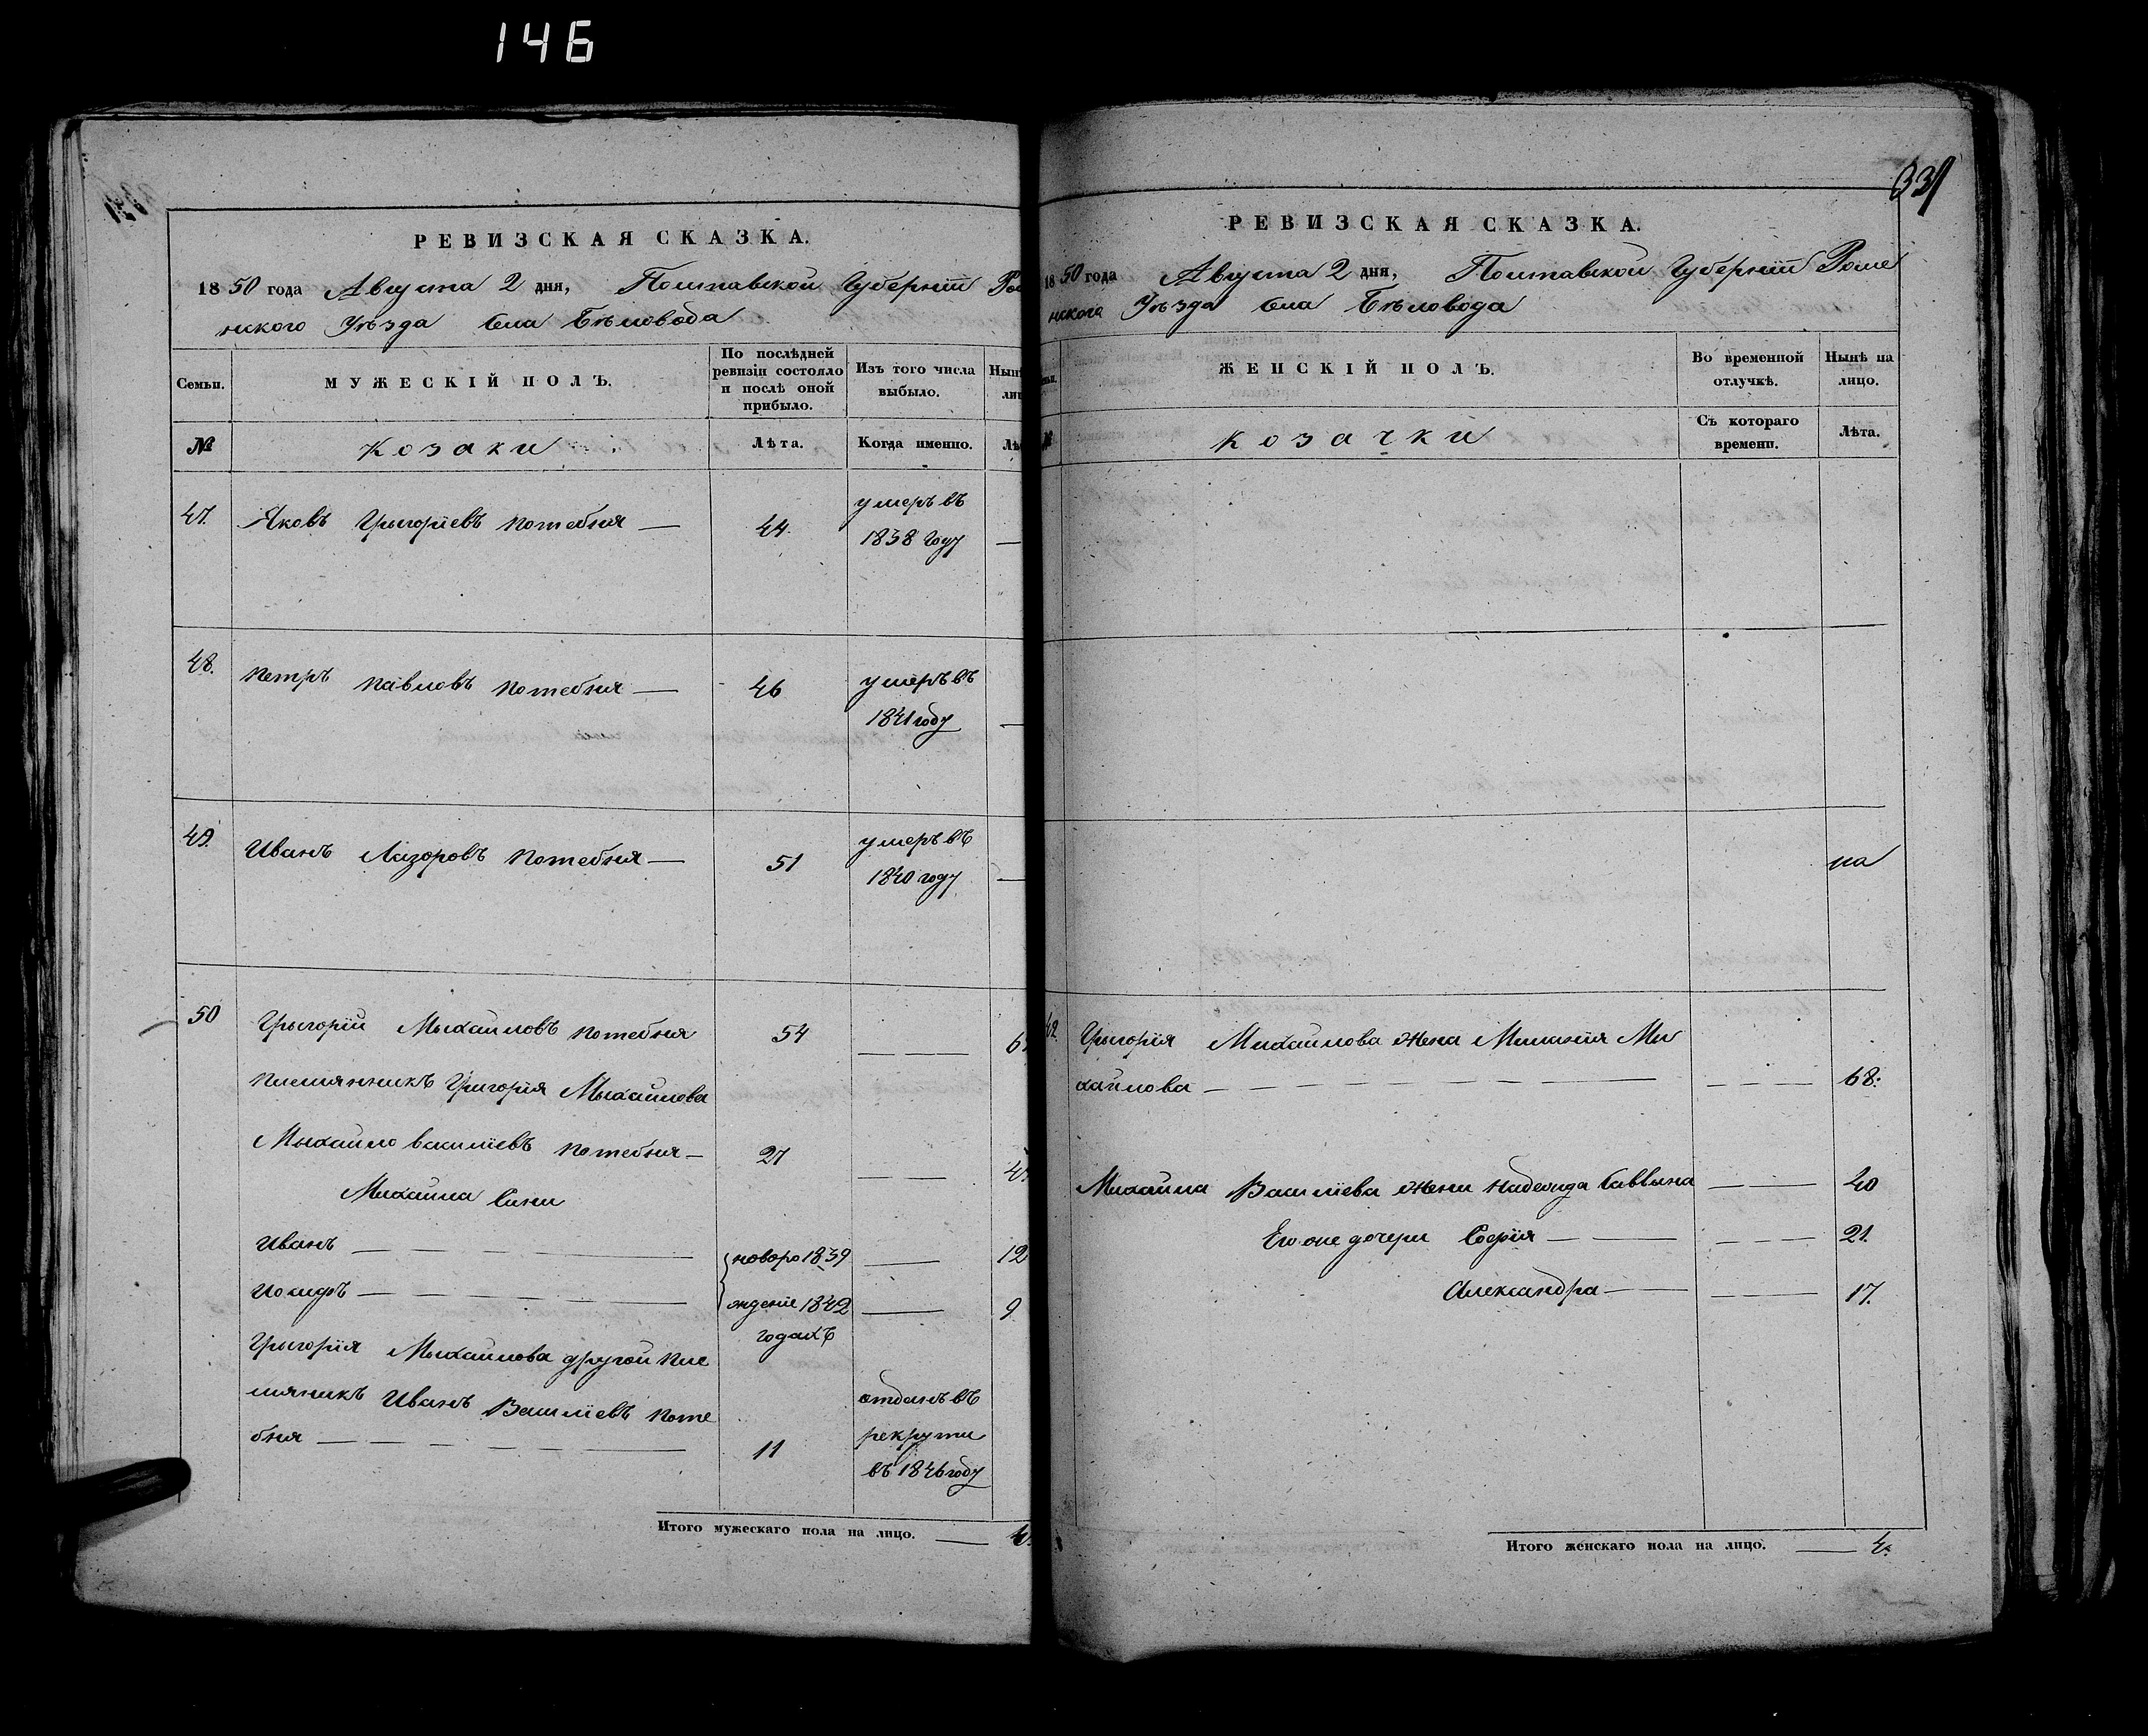 146
РЕВИЗСКАЯ СКАЗКА.
1850 года Августа 2 дня, Полтавской Губерніи Ро
нского Уѣзда Села Бѣловода
Семьи.
МУЖЕСКІЙ ПОЛЪ.
По послѣдней ревизіи состояло и послѣ оной прибыло.
Изъ того числа выбыло.
Нынѣ
№
Козаки
Лѣта.
Когда именно.
47. Яковъ Грыгоріевъ Потебня — 44. умеръ въ
1838 Году —
48. Петръ Павловъ Потебня — 46 умеръ въ
1841 году —
49. Иванъ Лазоровъ Потебня — 51 умеръ въ
1840 году —
50 Грыгорій Мыхайловъ Потебня 54 — —
Племянникъ Григорія Мыхайлова
Мыхайло Василіевъ Потебня — 27 — —
Михаила Сини
Иванъ — — — новоро 1839 — 12
Иосифъ — — — ждение 1842 — 9
годахъ
Грыгорія Мыхайлова другой пле
мяникъ Иванъ Василіевъ Поте
бня — — — 11
отданъ въ
рекруты
въ 1846 году
Итого мужескаго пола на лицо. — 4.
331
РЕВИЗСКАЯ СКАЗКА.
1850 года Августа 2 дня, Полтавской Губерніи Роме
нского Уѣзда Села Бѣловода
ЖЕНСКІЙ ПОЛЪ.
Во временной отлучкѣ.
Нынѣ на лицо.
№
Козачки
Съ котораго времени.
Лѣта.
Грыгорія Михайлова жена Миланія Ми
хайлова — — — 68.
Михайла Василіева жена Надежда Саввина — — 40
Его же дочери Софія — — 21.
Александра — — 17.
Итого женскаго пола на лицо. — 4.